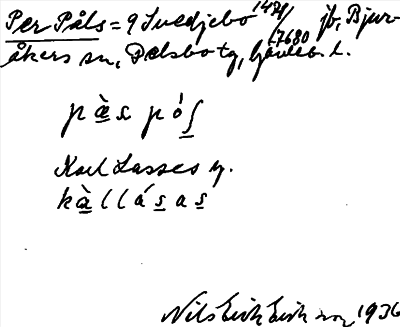 Per Påls = 9 Svedjebo 1421/7680 jb, Bjur-
åkers sn, Delsbo tg, Gävleb. l.
pæ̀r pó
Karl Lasses g.
kàllásas
Nils Erik Eriksson 1936